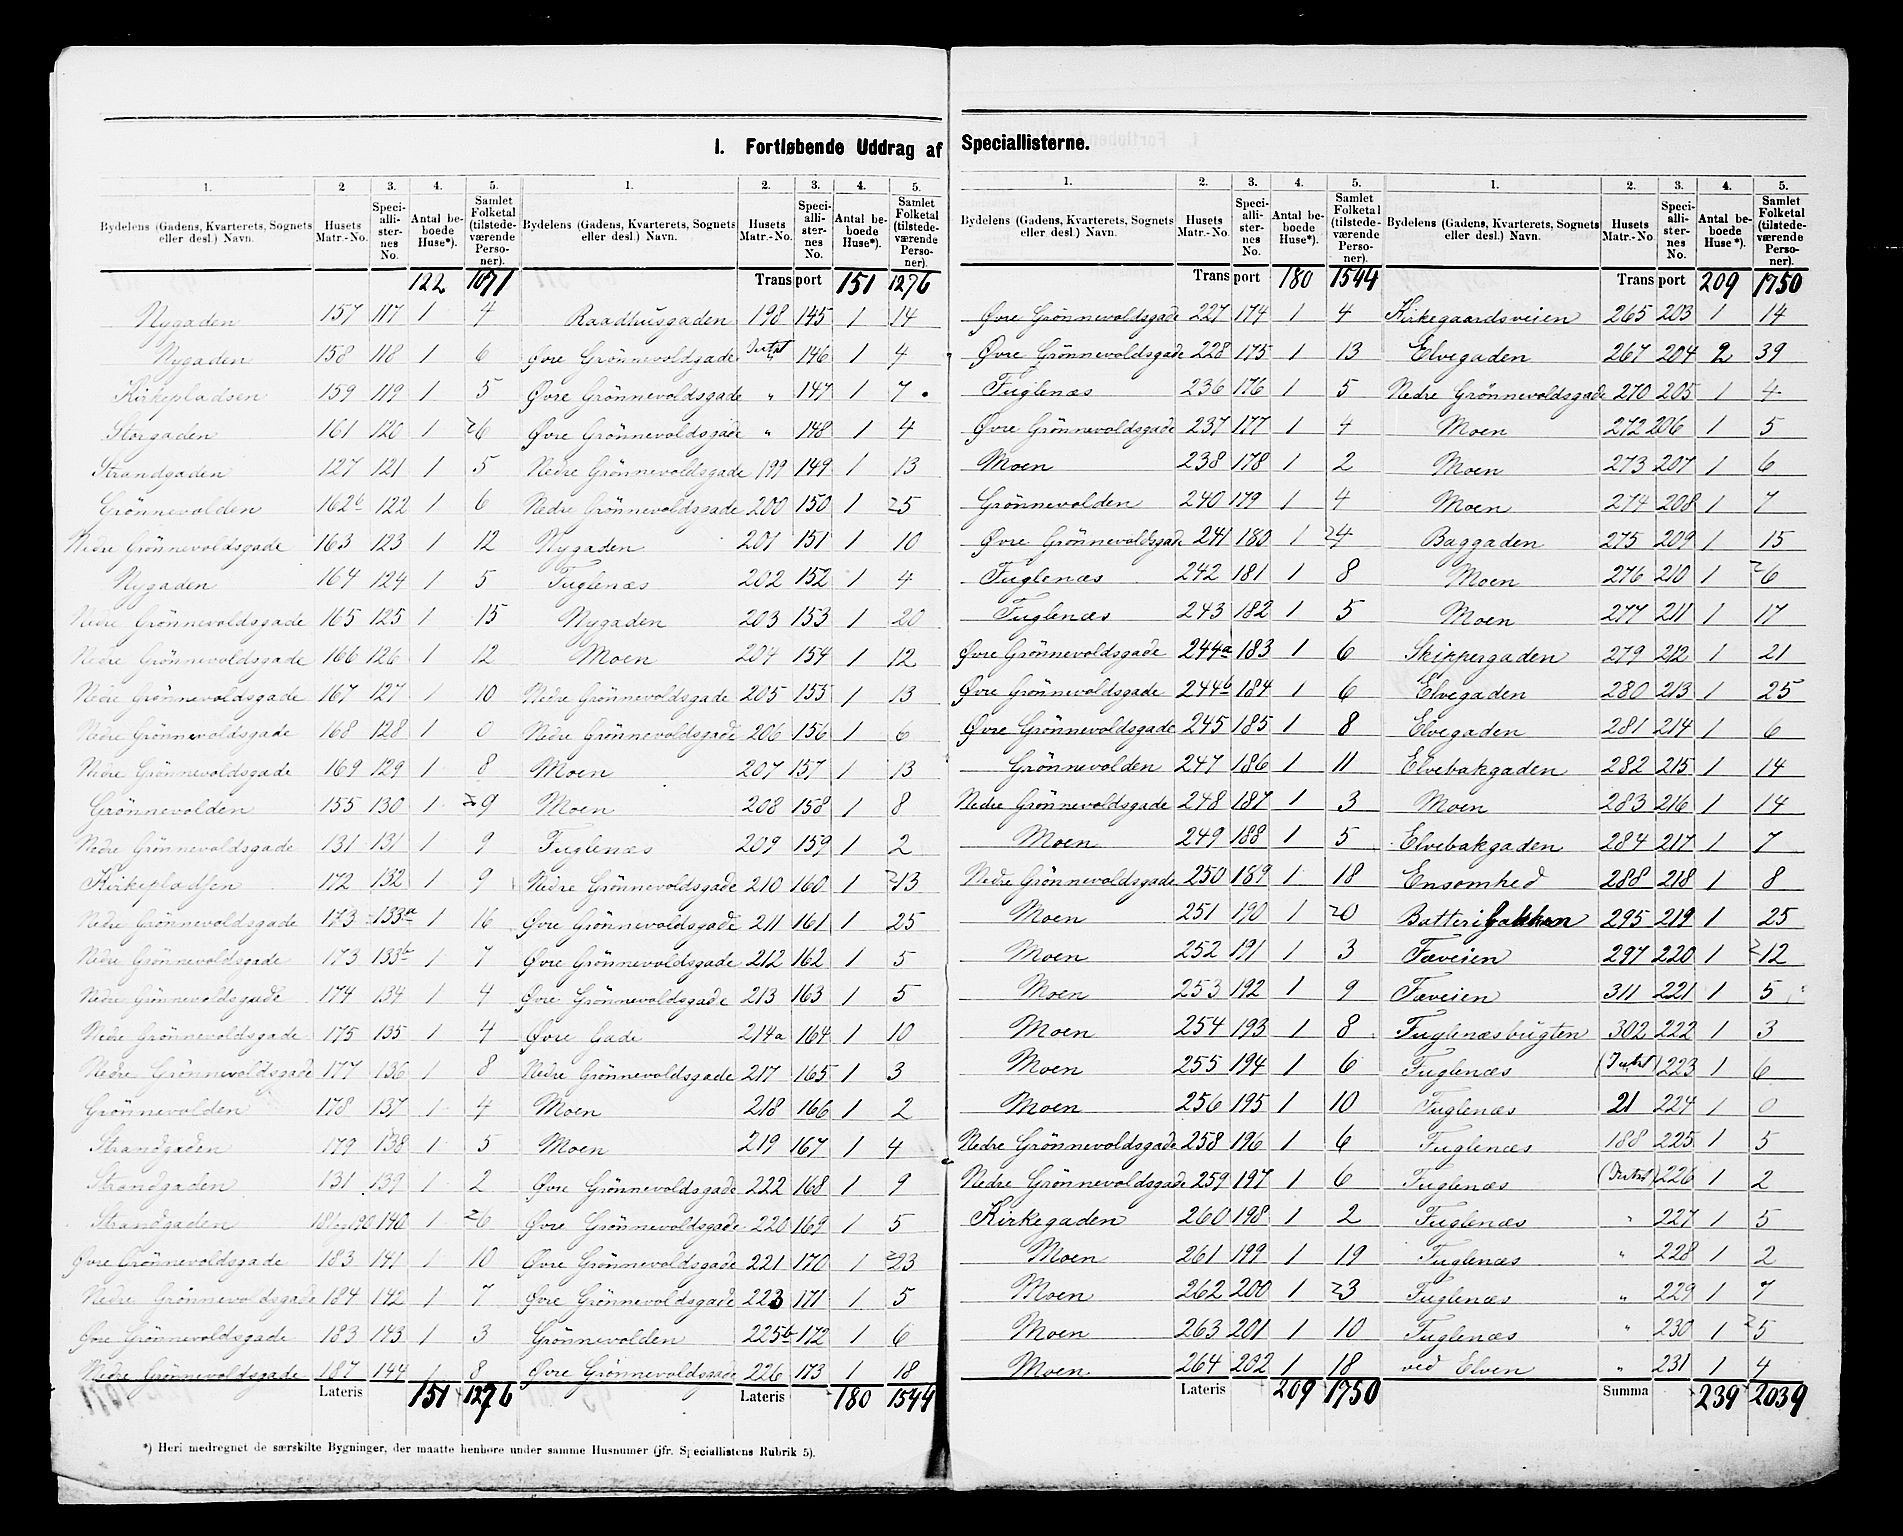 I. Fortløbende Uddrag af Speciallisterne.
1. 2 3. 4. 5.
Bydelens (Gadens, Kvarterets, Sognets eller desl.) Navn. Husets Matr.-No. Speciallisternes No. Antal beboede Huse*). Samlet Folketal (tilstedeværende Personer).
122 1071
Nygaden 157 117 1 4
Nygaden 158 118 1 6
Kirkepladsen 159 119 1 5
Storgaden 161 120 1 26
Strandgaden 127 121 1 5
Grönnevolden 162b 122 1 6
Nedre Grönnevoldsgade 163 123 1 12
Nygaden 164 124 1 5
Nedre Grönnevoldsgade 165 125 1 15
Nedre Grönnevoldsgade 166 126 1 12
Nedre Grönnevoldsgade 167 127 1 10
Nedre Grönnevoldsgade 168 128 1 0
Nedre Grönnevoldsgade 169 129 1 8
Grönnevolden 155 130 1 9
Nedre Grönnevoldsgade 131 131 1 9
Kirkepladsen 172 132 1 9
Nedre Grönnevoldsgade 173 133a 1 16
Nedre Grönnevoldsgade 173 133b 1 7
Nedre Grönnevoldsgade 174 134 1 4
Nedre Grönnevoldsgade 175 135 1 4
Nedre Grönnevoldsgade 177 136 1 8
Grönnevolden 178 137 1 4
Strandgaden 179 138 1 5
Strandgaden 131 139 1 2
Strandgaden 190 140 1 26
Øvre Grönnevoldsgade 183 141 1 10
Nedre Grönnevoldsgade 184 142 1 7
Øvre Grönnevoldsgade 183 143 1 3
Nedre Grönnevoldsgade 187 144 1 8
Lateris 151 1276
1. 2. 3. 4. 5.
Bydelens (Gadens, Kvarterets, Sognets eller desl.) Navn. Husets Matr.-No. Speciallisternes No. Antal beboede Huse*). Samlet Folketal (tilstedeværende Personer).
Transport 151 1276
Raadhusgaden 198 145 1 14
Øvre Grönnevoldsgade 146 1 4
Øvre Grönnevoldsgade " 147 1 7
Øvre Grönnevoldsgade " 148 1 4
Nedre Grönnevoldsgade 199 149 1 13
Nedre Grönnevoldsgade 200 150 1 25
Nygaden 201 151 1 10
Fuglenæs 202 152 1 4
Nygaden 203 153 1 20
Moen 204 154 1 12
Nedre Grönnevoldsgade 205 155 1 13
Nedre Grönnevoldsgade 206 156 1 6
Moen 207 157 1 13
Moen 208 158 1 8
Fuglenæs 209 159 1 2
Nedre Grönnevoldsgade 210 160 1 13
Øvre Grönnevoldsgade 211 161 1 25
Øvre Grönnevoldsgade 212 162 1 5
Øvre Grönnevoldsgade 213 163 1 5
Øvre Gade 214a 164 1 10
Nedre Grönnevoldsgade 217 165 1 3
Moen 218 166 1 2
Moen 219 167 1 4
Øvre Grönnevoldsgade 222 168 1 9
Øvre Grönnevoldsgade 220 169 1 5
Øvre Grönnevoldsgade 221 170 1 23
Øvre Grönnevoldsgade 223 171 1 5
Grönnevolden 225b 172 1 6
Øvre Grönnevoldsgade 226 173 1 18
Lateris 180 1544
*) Heri medregnet de særskilte Bygninger, der maatte henhøre under samme Husnumer (jfr. Speciallistens Rubrik 5).
1. 2. 3. 4. 5.
Bydelens (Gadens, Kvarterets, Sognets eller desl.) Navn. Husets Matr.-No. Speciallisternes No. Antal beboede Huse*). Samlet Folketal (tilstedeværende Personer).
Transport 180 1544
Øvre Grönnevoldsgade 227 174 1 4
Øvre Grönnevoldsgade 228 175 1 13
Fuglenæs 236 176 1 5
Øvre Grönnevoldsgade 237 177 1 4
Moen 238 178 1 2
Grönnevolden 240 179 1 4
Øvre Grönnevoldsgade 241 180 1 24
Fuglenæs 242 181 1 8
Fuglenæs 243 182 1 5
Øvre Grönnevoldsgade 244a 183 1 6
Øvre Grönnevoldsgade 244b 184 1 6
Øvre Grönnevoldsgade 245 185 1 8
Grönnevolden 247 186 1 11
Nedre Grönnevoldsgade 248 187 1 3
Moen 249 188 1 5
Nedre Grönnevoldsgade 250 189 1 18
Moen 251 190 1 20
Moen 252 191 1 3
Moen 253 192 1 9
Moen 254 193 1 8
Moen 255 194 1 6
Moen 256 195 1 10
Nedre Grönnevoldsgade 258 196 1 6
Nedre Grönnevoldsgade 259 197 1 6
Kirkegaden 260 198 1 2
Moen 261 199 1 19
Moen 262 200 1 23
Moen 263 201 1 10
Moen 264 202 1 18
Lateris 209 1750
1. 2. 3. 4. 5.
Bydelens (Gadens, Kvarterets, Sognets eller desl.) Navn. Husets Matr.-No Speciallisternes No. Antal beboede Huse*). Samlet Folketal (tilstedeværende Personer).
Transport 209 1750
Kirkegaardsveien 265 203 1 14
Elvegaden 267 204 2 39
Nedre Grönnevoldsgade 270 205 1 4
Moen 272 206 1 5
Moen 273 207 1 6
Moen 274 208 1 7
Baggaden 275 209 1 15
Moen 276 210 1 26
Moen 277 211 1 17
Skippergaden 279 212 1 21
Elvegaden 280 213 1 25
Elvegaden 281 214 1 6
Elvebakgaden 282 215 1 14
Moen 283 216 1 14
Elvebakgaden 284 217 1 7
Ensomhed 288 218 1 8
Batteribakken 295 219 1 25
Fæveien 297 220 1 12
Fæveien 311 221 1 5
Fuglenæsbugten 302 222 1 3
Fuglenæs 223 1 6
Fuglenæs 21 224 1 0
Fuglenæs 188 225 1 5
Fuglenæs 226 1 2
Fuglenæs " 227 1 5
Fuglenæs " 228 1 2
Fuglenæs " 229 1 7
Fuglenæs " 230 1 25
ved Elven " 231 1 4
Summa 239 2039